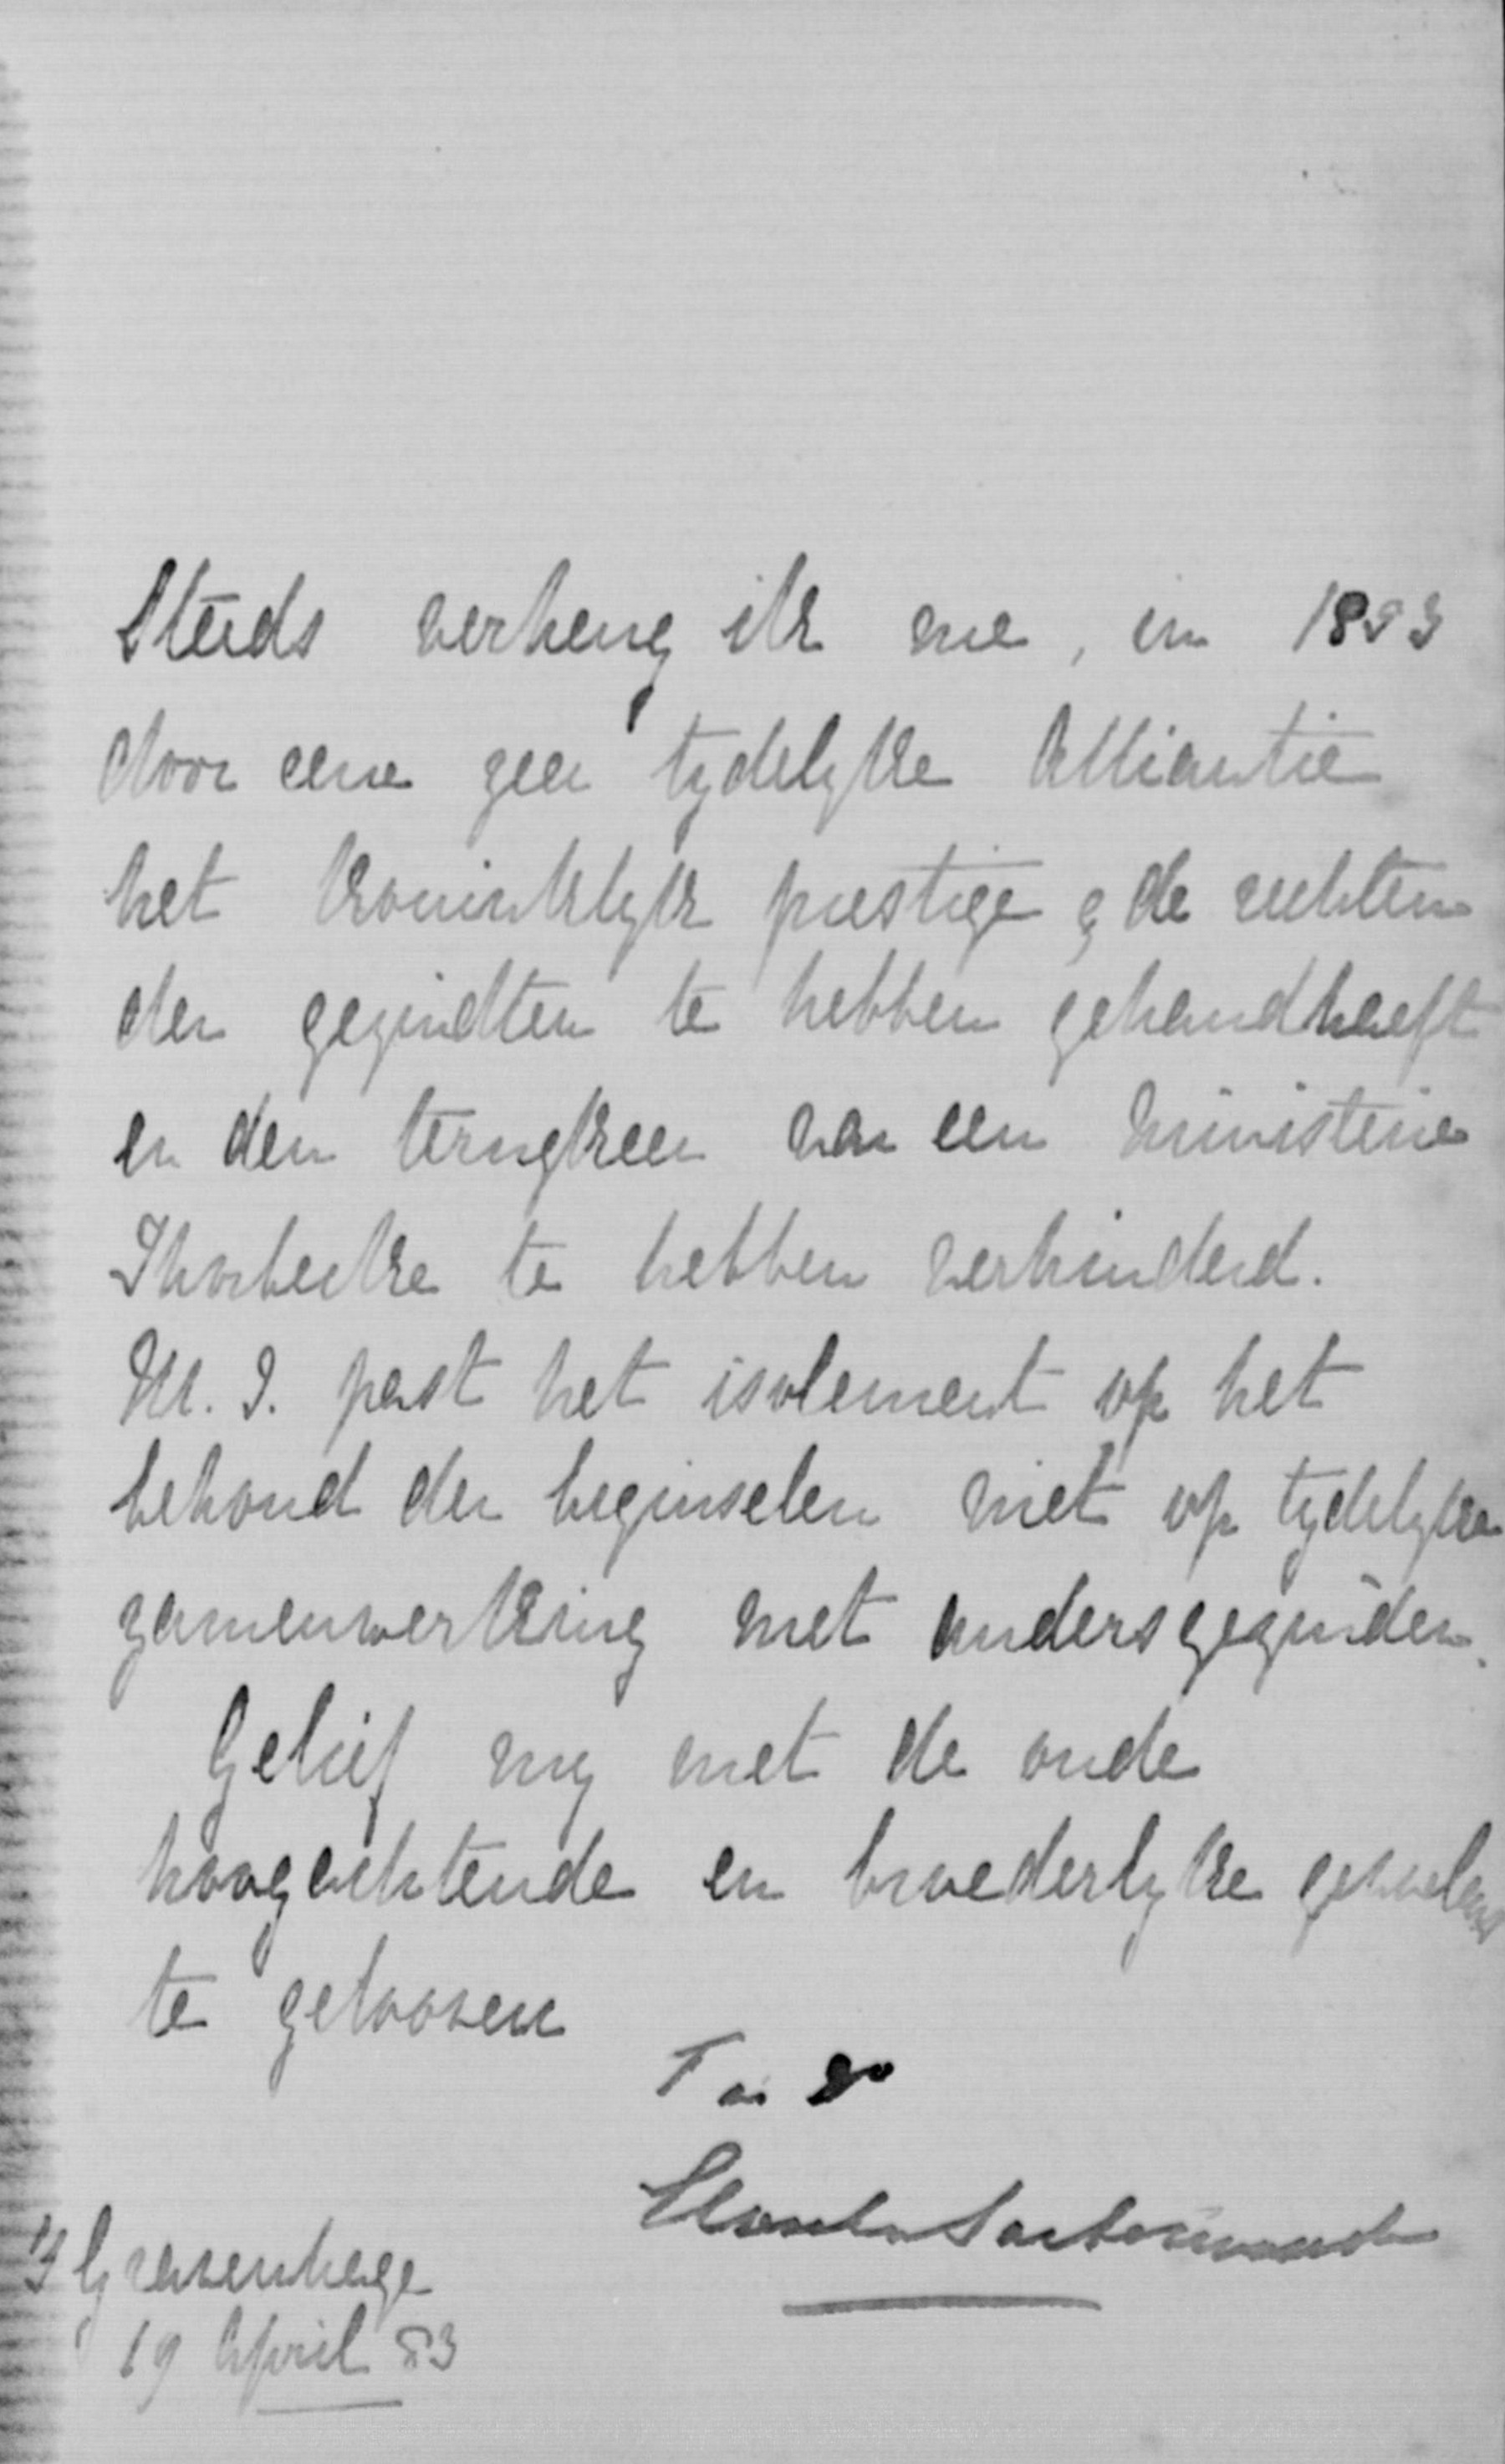 Steeds verheug ik me, in 1853
door eene zeer tydelyke Alliantie
het koninklyk prestige & de rechten
der gezindten te hebben gehandhaeft
en den terugkeer van een ministerie
Thorbecke te hebben verhinderd.
M. I. past het isolement op het
behoud der beginselen niet op tydelyke
zamenwerking met andersgezinden.
Gelief my met de oude
hoogachtende en broederlyke gevoelens
te gelooven
T a v
Elout v Soeterwoude
's Gravenhage
19 April 83